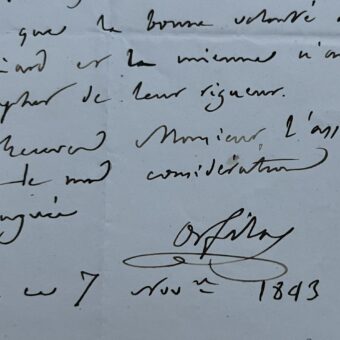 que la bonne volonté
et la mienne n'on
de leur rigueur.
Monsieur, l'ass
de ma considération
Orfila
ce 7 Nov.re 1843